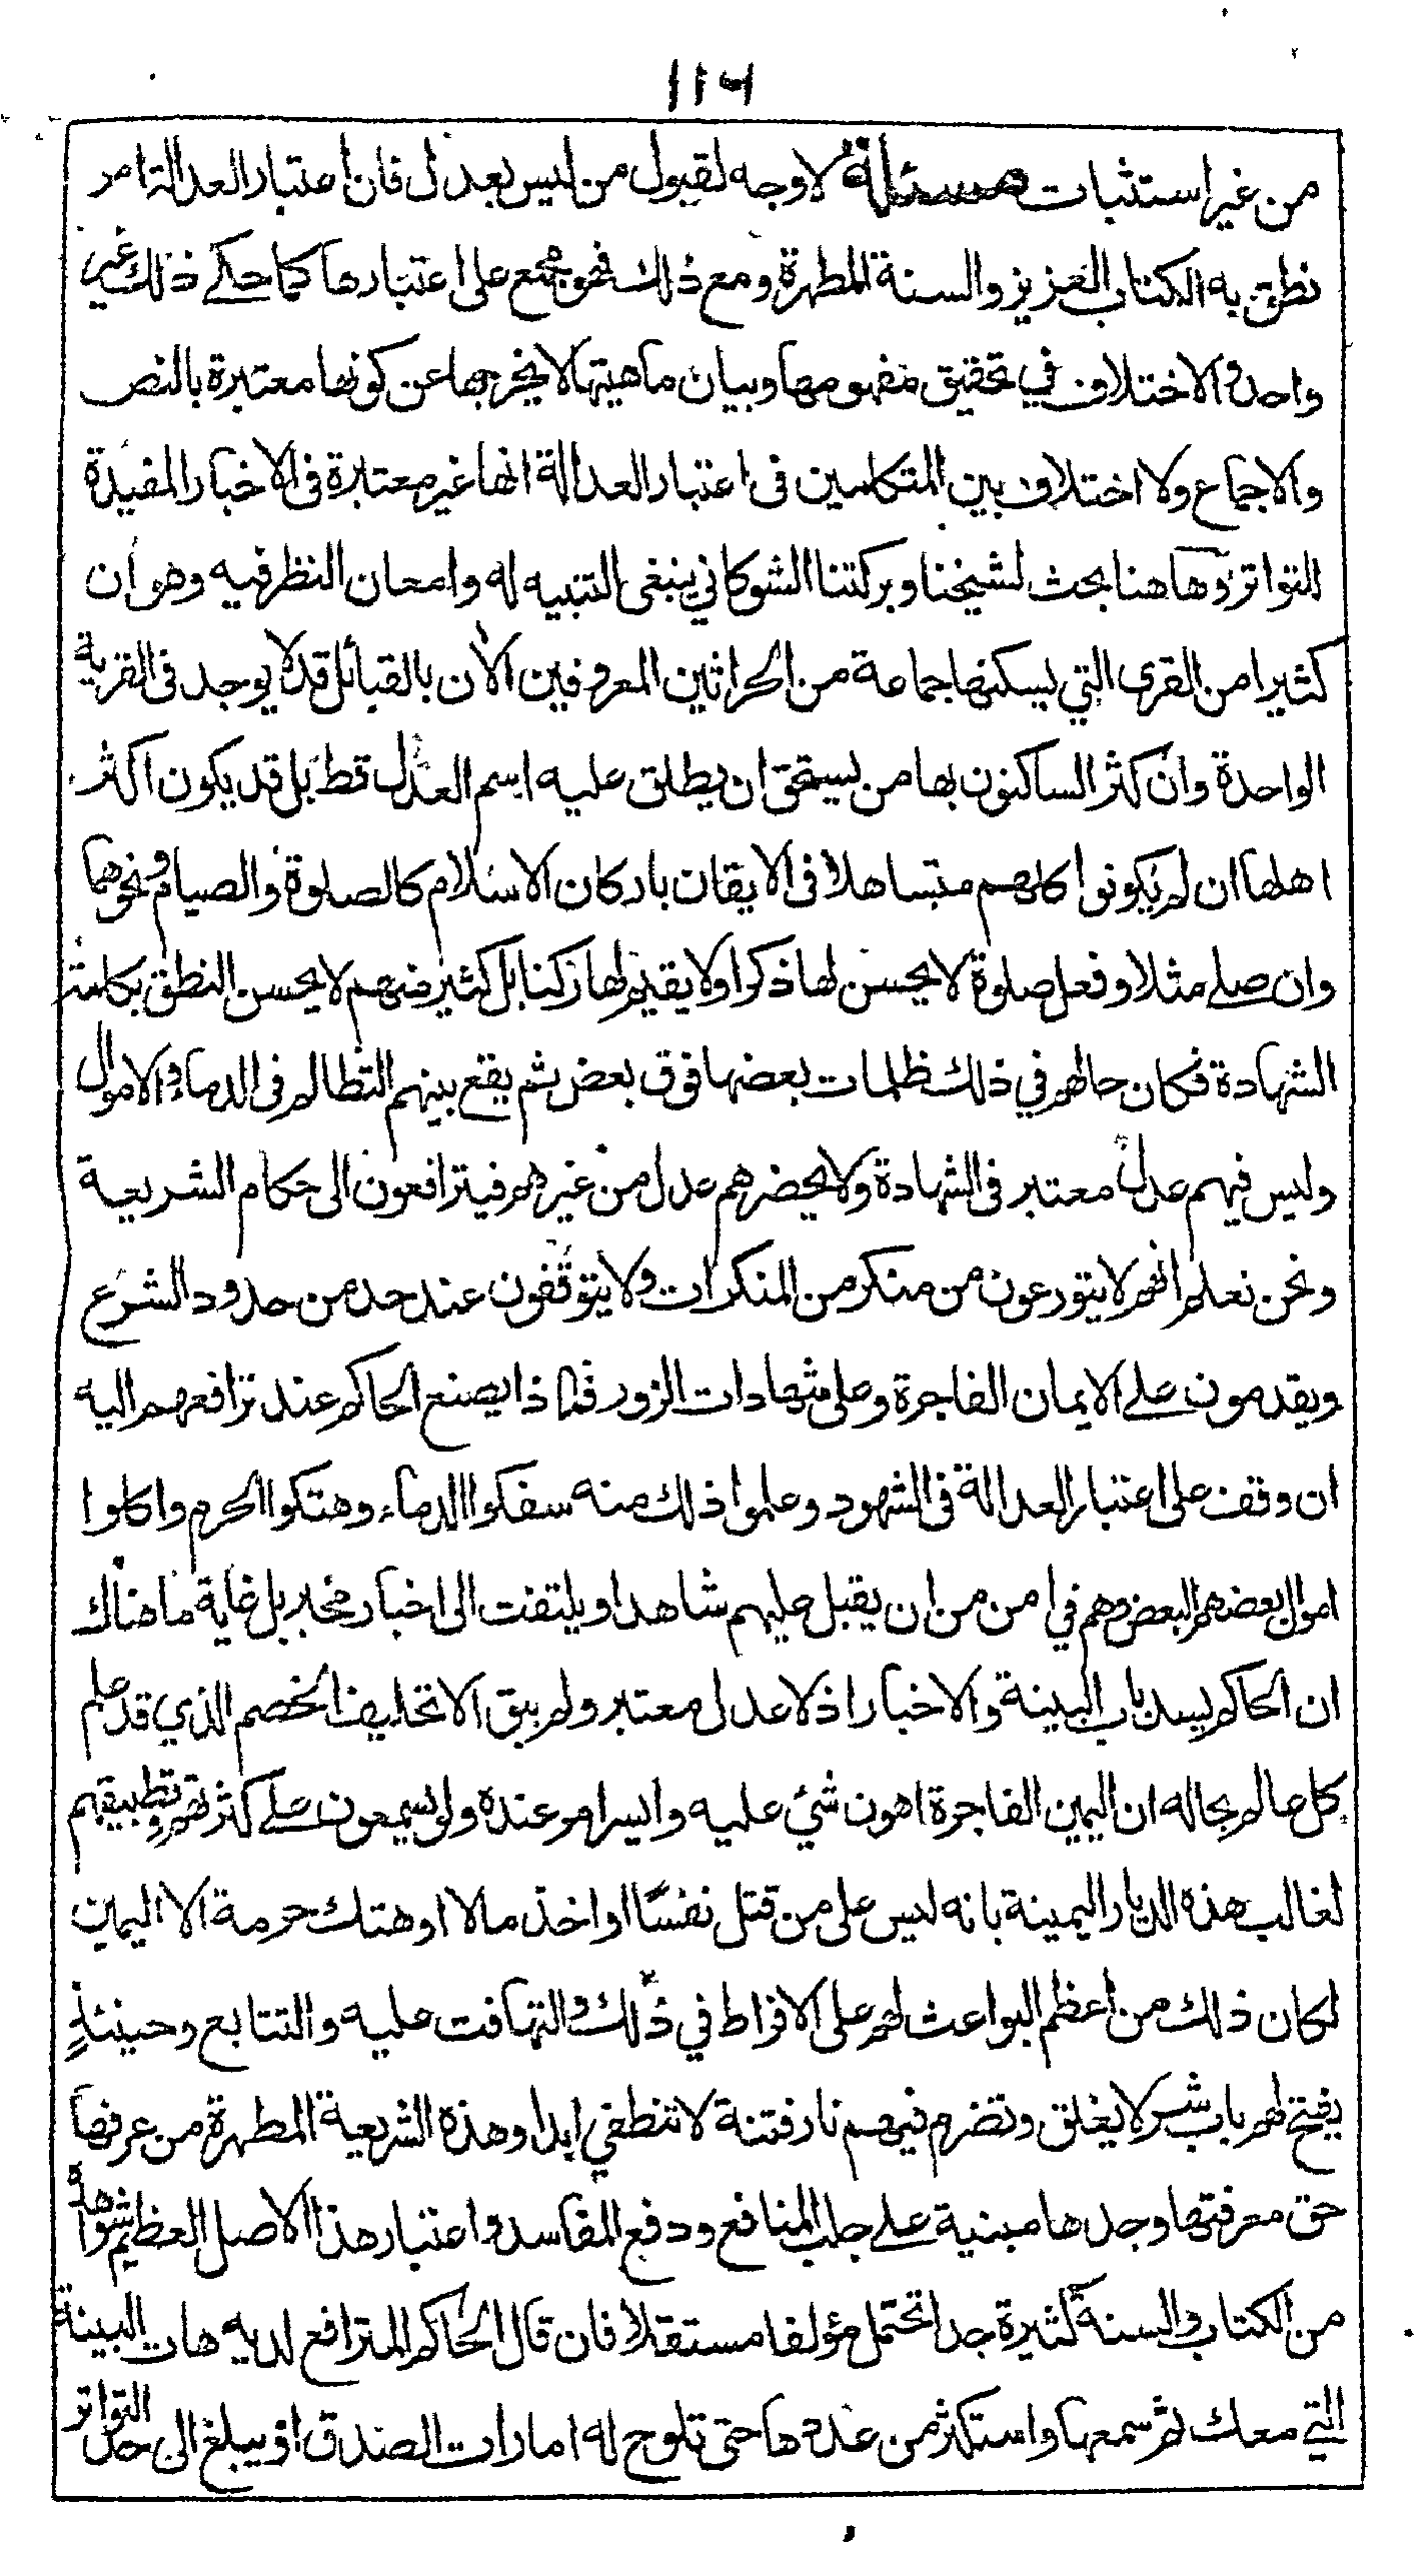 ١١٦
من غير استثبات مسئلة لا وجه لقبول من ليس بعدل فان اعتبار العدالة امر
نطق به الكتاب العزيز والسنة المطهرة ومع ذلك فهو مجمع على اعتبارها كما حكے ذلك غير
واحد والاختلاف في تحقيق مفهومها وبيان ماهيتها لا يخرجها عن كونها معتبرة بالنص
والاجماع ولا اختلاف بين المتكلمين فى اعتبار العدالة انها غير معتبرة فى الاخبار المفيدة
للتواتر وهاهنا بحث لشيخنا وبركتنا الشوكاني ينبغى التنبيه له وامعان النظر فيه وهو ان
كثيرا من القرى التي يسكنها جماعة من الحراثين المعروفين الآن بالقبائل قد لا يوجد فى القرية
الواحدة وان كثر الساكنون بها من يستحق ان يطلق عليه اسم العدل قط بل قد يكون اكثر
اهلها ان لم يكونوا كلهم متساهلا فى الايقان باركان الاسلام كالصلوة والصيام ونحوهما
وان صلے مثلا وفعل صلوة لا يحسن لها ذكرا ولا يقيم لها ركنا بل كثير منهم لا يحسن النطق بكلمة
الشهادة فكان حالهم في ذلك ظلمات بعضها فوق بعض ثم يقع بينهم التظالم فى الدماء والاموال
وليس فيهم عدل معتبر فى الشهادة ولا يحضرهم عدل من غيرهم فيترافعون الى حكام الشريعة
ونحن نعلم انهم لا يتورعون من منكر من المنكرات ولا يتوقفون عند حد من حدود الشرع
ويقدمون علے الايمان الفاجرة وعلى شهادات الزور فما ذا يصنع الحاكم عند ترافعهم اليه
ان وقف على اعتبار العدالة فى الشهود وعلموا ذلك منه سفكوا الدماء وهتكوا الحرم واكلوا
اموال بعضهم البعض وهم في امن من ان يقبل عليهم شاهدا ويلتفت الى اخبار مخبر بل غاية ما هناك
ان الحاكم يسد باب البينة والاخبار اذ لا عدل معتبر ولم يبق الا تحليف الخصم الذي قد علم
كل عالم بحاله ان اليمين الفاجرة اهون شئ عليه وايسر امر عنده ولو يسمعون علے كثرتهم وتطبيقهم
لغالب هذه الديار اليمينة بانه ليس على من قتل نفسًا او اخذ مالا او هتك حرمة الا اليمين
لكان ذلك من اعظم البواعث لهم على الافراط في ذلك والتهافت عليه والتتابع وحينئذٍ
يفتح لهم باب شر لا يغلق وتضرم فيهم نار فتنة لا تنطفي ابدا وهذه الشريعة المطهرة من عرفها
حق معرفتها وجدها مبنية علے جلب المنافع ودفع المفاسد واعتبار هذا الاصل العظيم شواهده
من الكتاب والسنة كثيرة جدا تحتمل مؤلفا مستقلا فان قال الحاكم المترافع لديه هات البينة
التي معك ثم سمعها واستكثر من عددها حتى تلوح له امارات الصدق او يبلغ الى حد التواتر